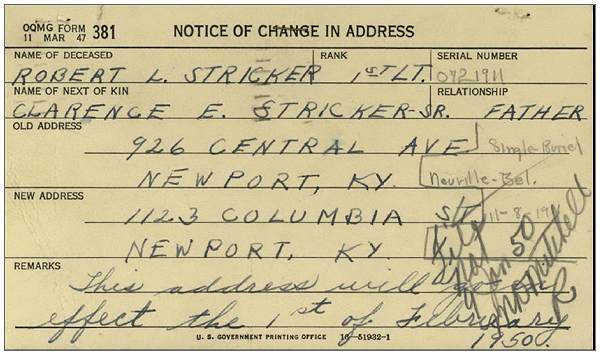 OQMG FORM 381
11 MAR 47
NOTICE OF CHANGE IN ADDRESS
NAME OF DECEASED RANK SERIAL NUMBER
ROBERT L. STRICKER 1ST LT. 0721911
NAME OF NEXT OF KIN RELATIONSHIP
CLARENCE E. STRICKER-SR. FATHER
OLD ADDRESS
926 CENTRAL AVE Single-Buriel
NEWPORT, KY. Neuville-Bel.
NEW ADDRESS
1123 COLUMBIA ST. 11-8-
NEWPORT, KY. File
50
Mitchell
REMARKS
This address will go in
effect the 1st of February
1950.
U. S. GOVERNMENT PRINTING OFFICE 16-51932-1